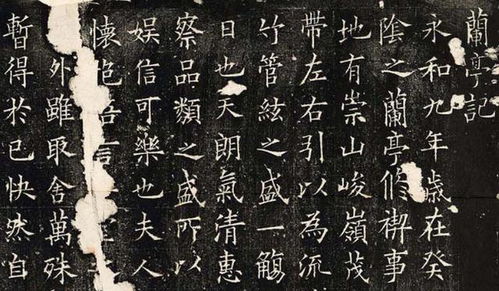 蘭亭記
永和九年歲在癸
陰之蘭亭修禊事
地有崇山峻嶺茂
帶左右引以為流
竹管絃之盛一觴
日也天朗氣清惠
察品類之盛所以
娛信可樂也夫人
懷抱悟言
外雖取舍萬殊
暫得於己快然自